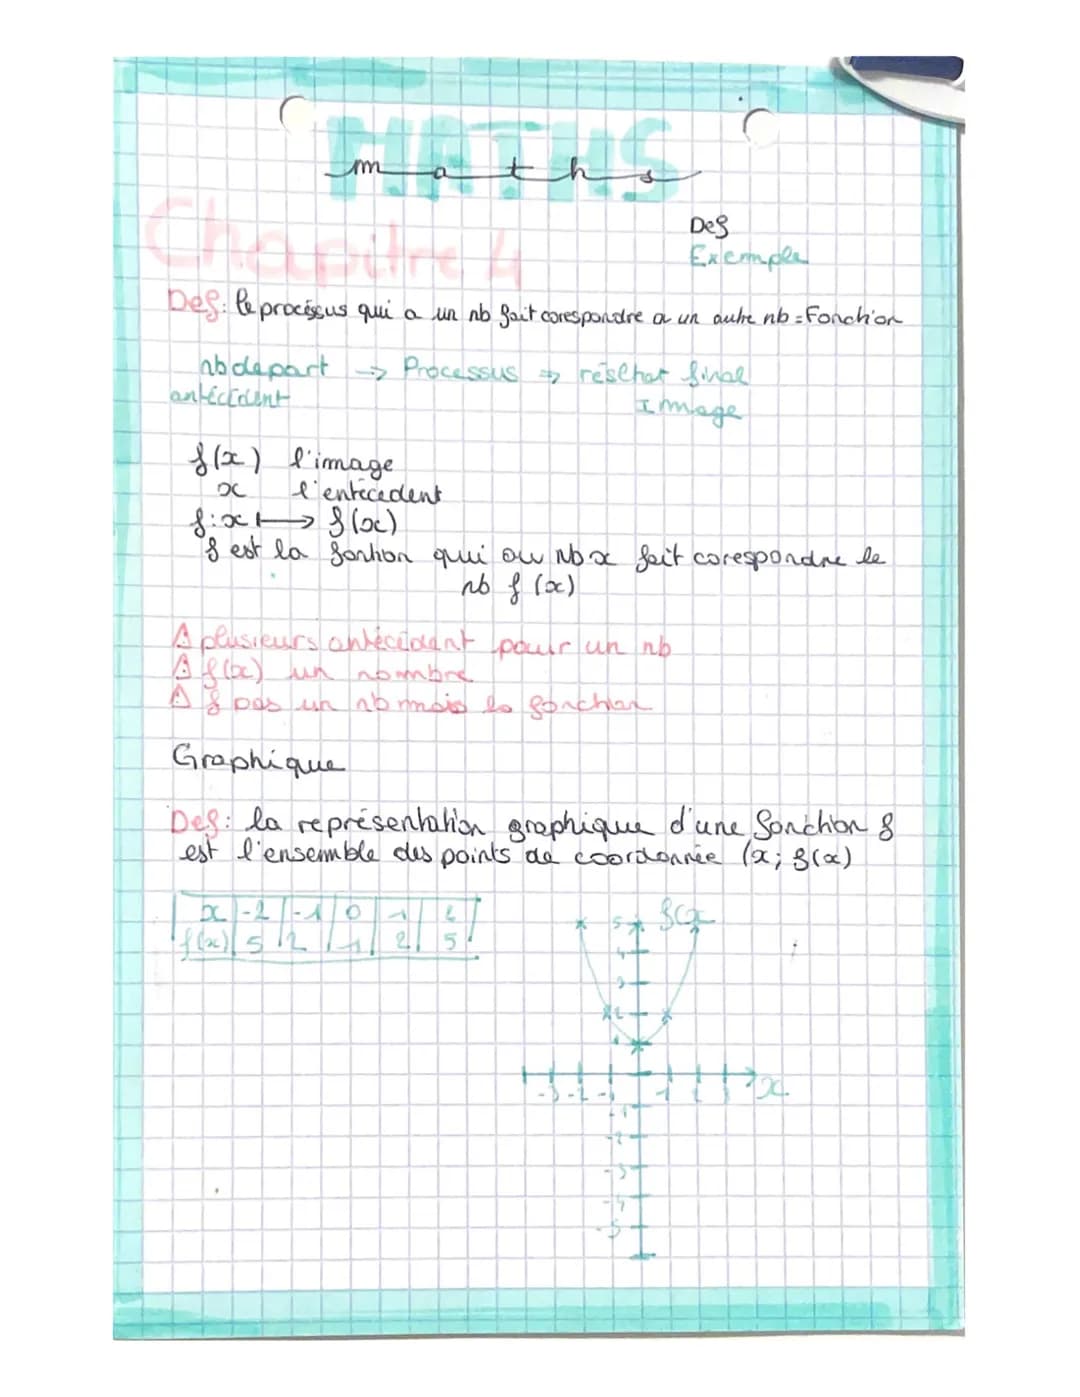 MATHS
maths
Chapitre 4
Def
Exemple
Def: le procéssus qui a un nb fait corespondre a un autre nb = Fonction
nb depart → Processus → résltat final
antécédent Image
f(x) l'image
x l'entécedent
f: x ⟼ f(x)
f est la fontion qui au Nb x fait corespondre le
nb f (x)
⚠ plusieurs antécédant pour un nb
⚠ f(x) un nombre
⚠ f pas un nb mais la fonction
Graphique
Def: la représentation graphique d'une fonction f
est l'ensemble des points de coordonnée (x; f(x)
x -2 -1 0 1 2
f(x) 5 2 1 2 5
5 f(x
4
3
2
1
-3 -2 -1 1 2 3 x
-1
-2
-3
-4
-5